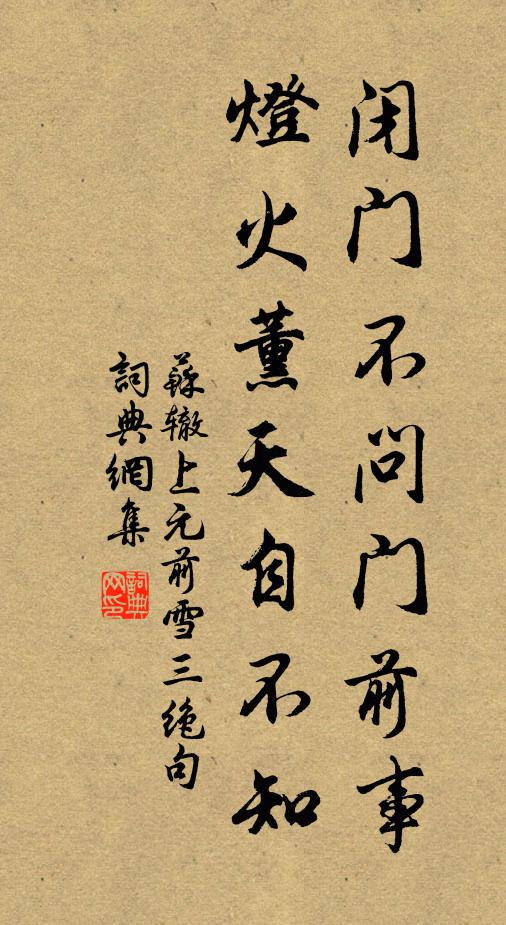 闭门不问门前事
燈火薰天自不知
蘇辙上元前雪三绝句
詞典網集
詞典网印